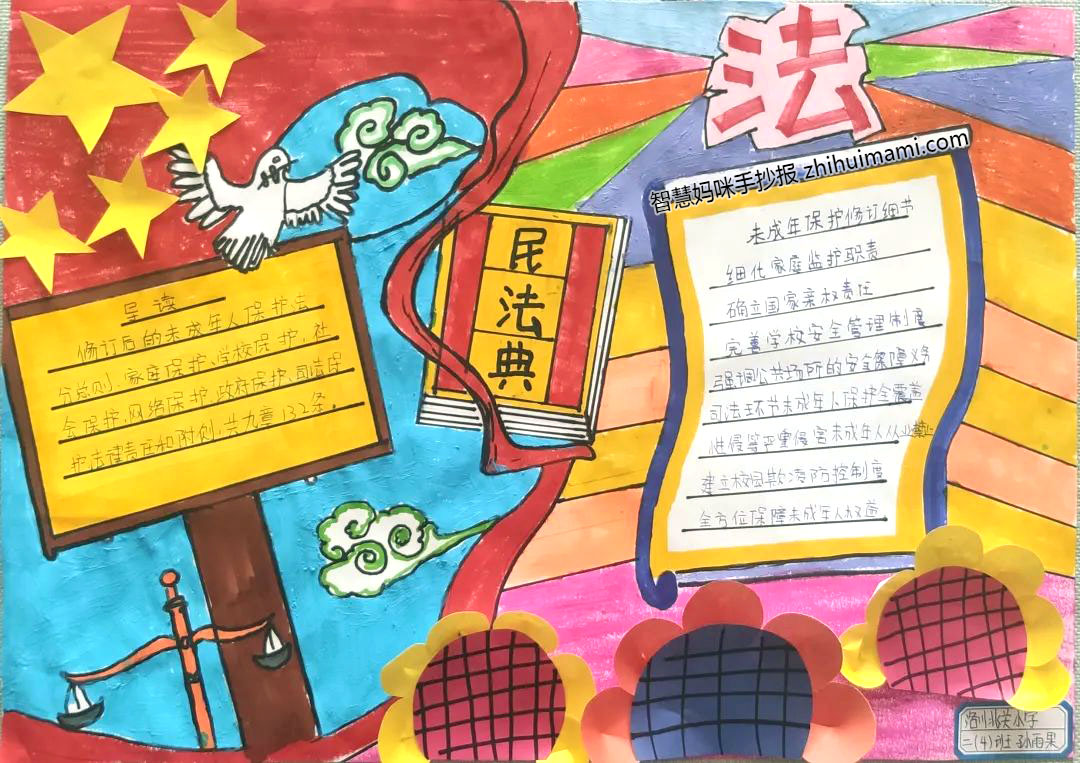 法
智慧妈咪手抄报 zhihuimami.com
民
法
典
导读
修订后的未成年人保护法
分总则、家庭保护、学校保护、社
会保护、网络保护、政府保护、司法保
护法律责任和附则，共九章132条。
未成年保护修订细节
细化家庭监护职责
确立国家亲权责任
完善学校安全管理制度
强调公共场所的安全保障义务
司法环节未成年人保护全覆盖
性侵等严重侵害未成年人从业禁止
建立校园欺凌防控制度
全方位保障未成年人权益
洛川北关小学
二(4)班 孙雨果